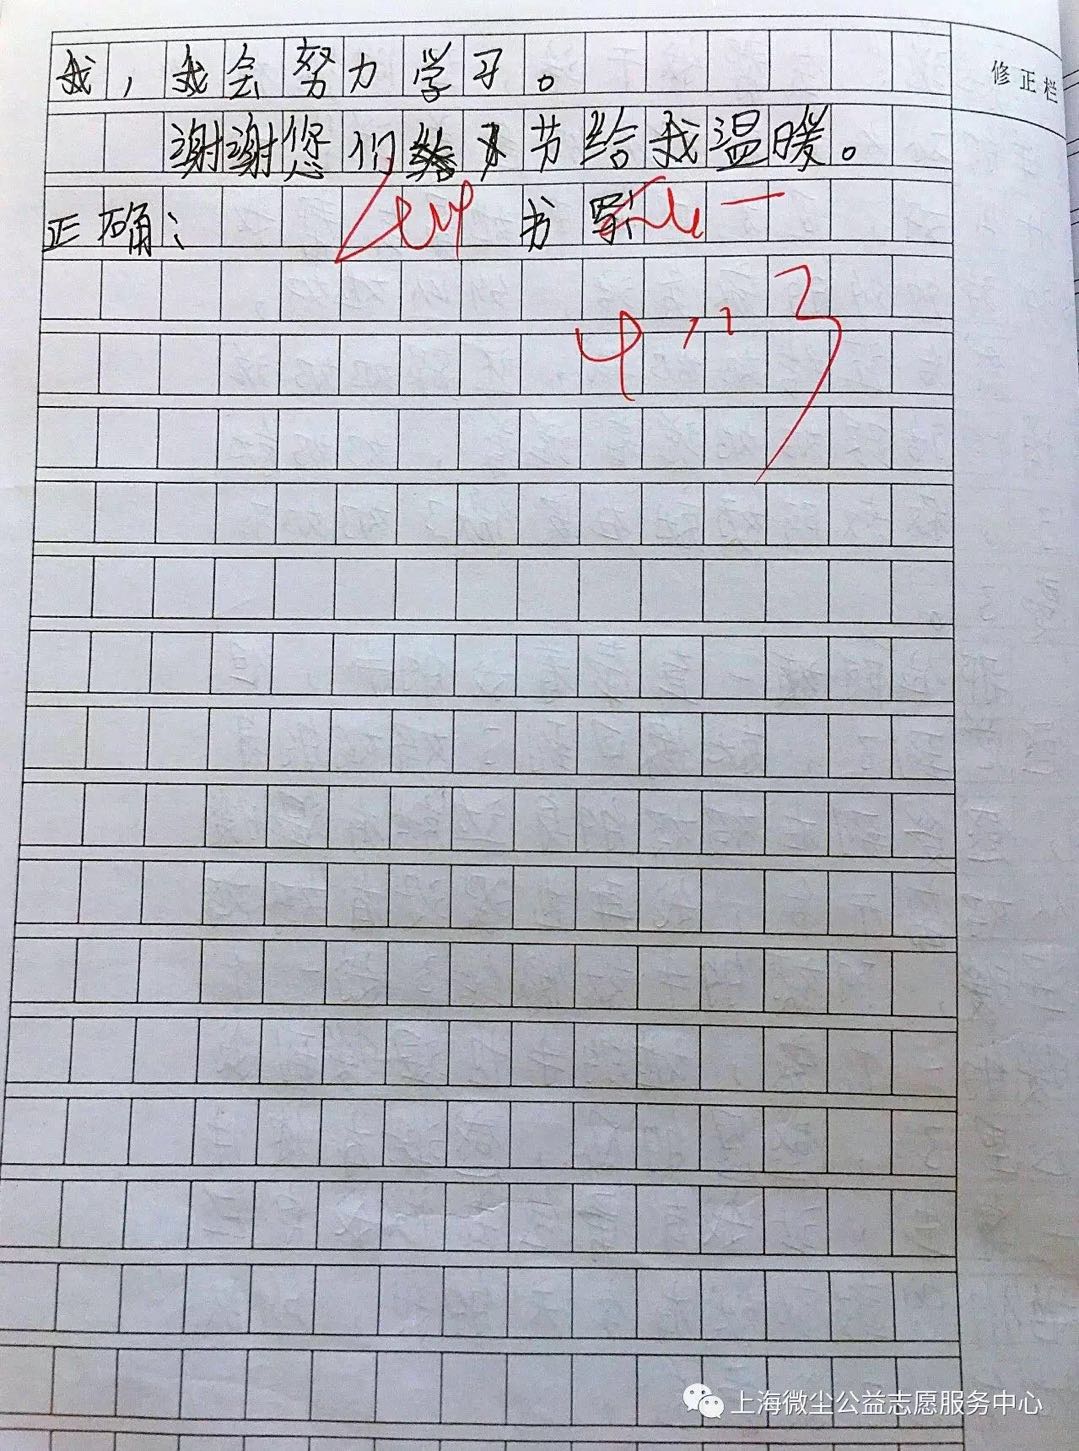 我，我会努力学习。
修正栏
谢谢您们节给我温暖。
正确： 书写
上海微尘公益志愿服务中心